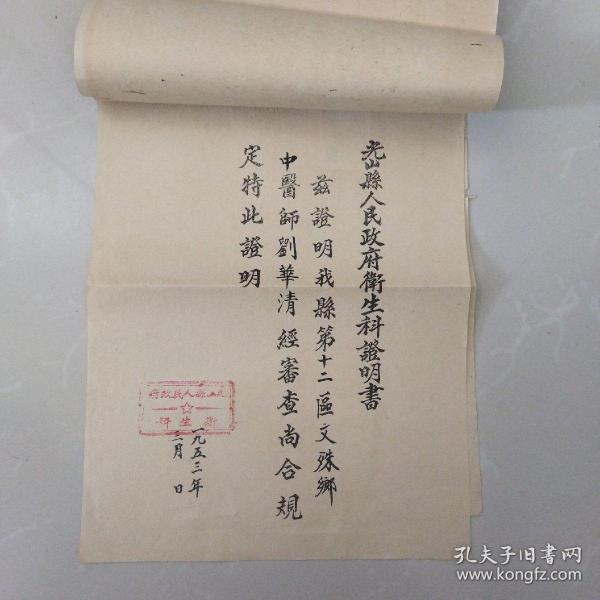 光山縣人民政府衛生科證明書
茲證明我縣第十二區文殊鄉
中醫師劉華清經審查尚合規
定特此證明
一九五三年
二月 日
光山縣人民政府
衛生科
孔夫子旧书网
www.kongfz.com